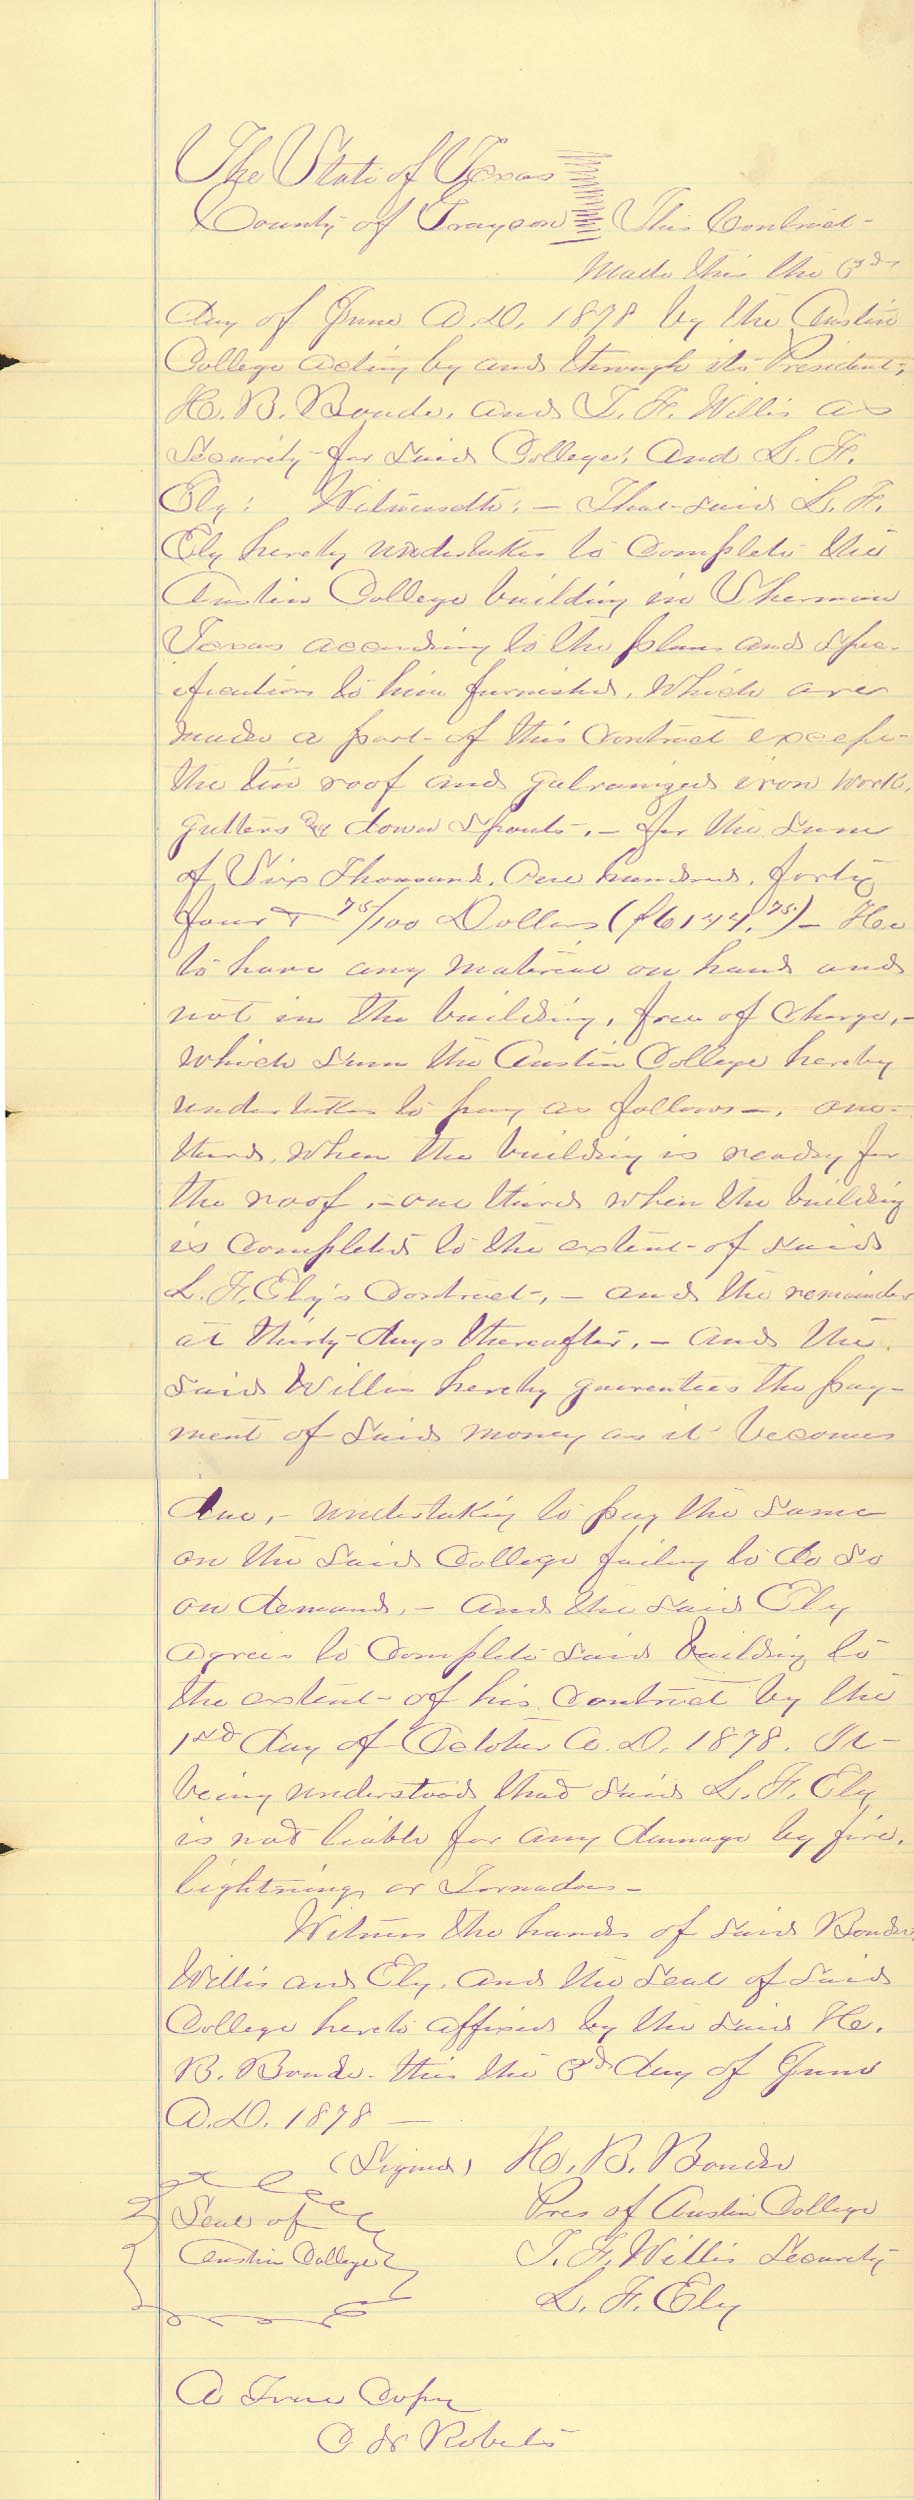 The State of Texas
County of Grayson } This Contract-
Made this the 3rd
day of June A.D. 1878 by the Austin
College acting by and through its President,
H. B. Boude, and T. F. Willis as
Security for said College, and L. F.
Ely: Witnesseth; – That said L. F.
Ely hereby undertakes to complete the
Austin College building in Sherman
Texas according to the plans and spec-
ifications to him furnished, which are
made a part of this contract except
the tin roof and galvanized iron work,
gutters & down spouts, – for the sum
of Six Thousand, One hundred, forty
four + 75/100 Dollars ($6144.75) – He
to have any material on hand and
not in the building, free of charge, –
which sum the Austin College hereby
undertakes to pay as follows –, one-
third, when the building is ready for
the roof, – one third when the building
is completed to the extent of said
L. F. Ely's contract, – and the remainder
at thirty days thereafter, – And the
said Willis hereby guarentees the pay-
ment of said money as it becomes
due, – undertaking to pay the same
on the said College failing to do so
on demand, – And the said Ely
agrees to complete said building to
the extent of his contract by the
1st day of October A.D. 1878. It
being understood that said L. F. Ely
is not liable for any damage by fire,
lightning, or Tornadoes –
Witness the hands of said Boude,
Willis and Ely, and the seal of said
College hereto affixed by the said H.
B. Boude. this the 3rd day of June
A.D. 1878 —
(Signed) H. B. Boude
Pres of Austin College
Seal of
Austin College
T. F. Willis Security
L. F. Ely
A True Copy
Roberts